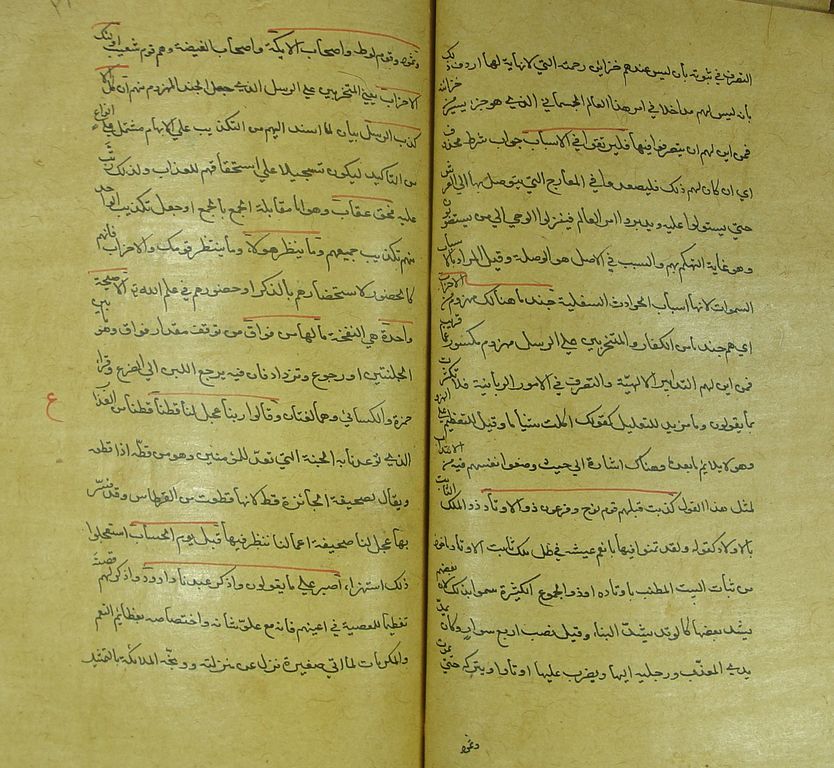 التصرف في نبوته بان ليس عندهم خزائن رحمته التي لا نهاية لها اردف ذلك
بانه ليس لهم مدخل في امر هذا العالم الجسماني الذي هو جزء يسير خزائنه
فمن اين لهم ان يتصرفوا فيها فليرتقوا في الاسباب جواب شرط محذوف
اي ان كان لهم ذلك فليصعدوا في المعارج التي يتوصل بها الى العرش
حتى يستولوا عليه ويدبروا امر العالم فينزلوا الوحي الى من يستصوبون
وهو غاية التهكم بهم والسبب في الاصل هو الوصلة وقيل المراد بالاسباب
السموات لانها اسباب الحوادث السفلية جند ما هنالك مهزوم من الاحزاب
اي هم جند ما من الكفار والمتحزبين على الرسل مهزوم مكسور عما قريب
فمن اين لهم التدابير الالهية والتصرف في الامور الربانية فلا تكترث
بما يقولون وما مزيد للتقليل كقولك اكلت شيئا ما وقيل للتعظيم
وهو لا يلايم ما بعده وهناك اشارة الى حيث وضعوا انفسهم فيه من الانتداب
لمثل هذا القول كذبت قبلهم قوم نوح وفرعون ذو الاوتاد ذو الملك الثابت
بالاوتاد كقوله ولقد غنوا فيها بانعم عيشة في ظل ملك ثابت الاوتاد ماخوذ
من ثبات البيت المطنب باوتاده او ذو الجموع الكثيرة سموا بذلك لان بعضهم
يشد بعضها كالوتد يشد البناء وقيل نصب اربع سوار وكان يمد
يدي المعذب ورجليه اليها ويضرب عليها اوتادا ويتركه حتى يموت
وثمود
وثمود وقوم لوط واصحاب الايكة واصحاب الغيضة وهم قوم شعيب اولئك
الاحزاب يعني المتحزبين على الرسل الذي جعل الجند المهزوم منهم ان كل الا
كذب الرسل بيان لما اسند اليهم من التكذيب على الابهام مشتمل على انواع
من التاكيد ليكون تسجيلا على استحقاقهم للعذاب ولذلك رتب
عليه فحق عقاب وهو اما مقابلة الجمع بالجمع او جعل تكذيب الواحد
منهم تكذيب جميعهم وما ينظر هولاء وما ينتظر قومك والاحزاب فانهم
كالحضور لاستحضارهم بالذكر او حضورهم في علم الله تع الا صيحة
واحدة هي النفخة ما لها من فواق من توقف مقدار فواق وهو ما بين
الحلبتين او رجوع وترداد فان فيه يرجع اللبن الى الضرع وقرا
حمزة والكسائي وهما لغتان وقالوا ربنا عجل لنا قطنا قطنا من العذاب
الذي توعدنا به الجنة التي تعد للمؤمنين وهو من قطه اذا قطعه
ويقال لصحيفة الجائزة قط لانها قطعت من القرطاس وقد فسر
بها عجل لنا صحيفة اعمالنا ننظر فيها قبل يوم الحساب استعجلوا
ذلك استهزاء اصبر على ما يقولون واذكر عبدنا داوود واذكر لهم قصته
تعظيما للمعصية في اعينهم فانه مع علو شانه واختصاصه بعظائم النعم
والمكرمات لما اتى صغيرة نزل عن منزلته ووبخه الملائكة بالتمثيل
ع